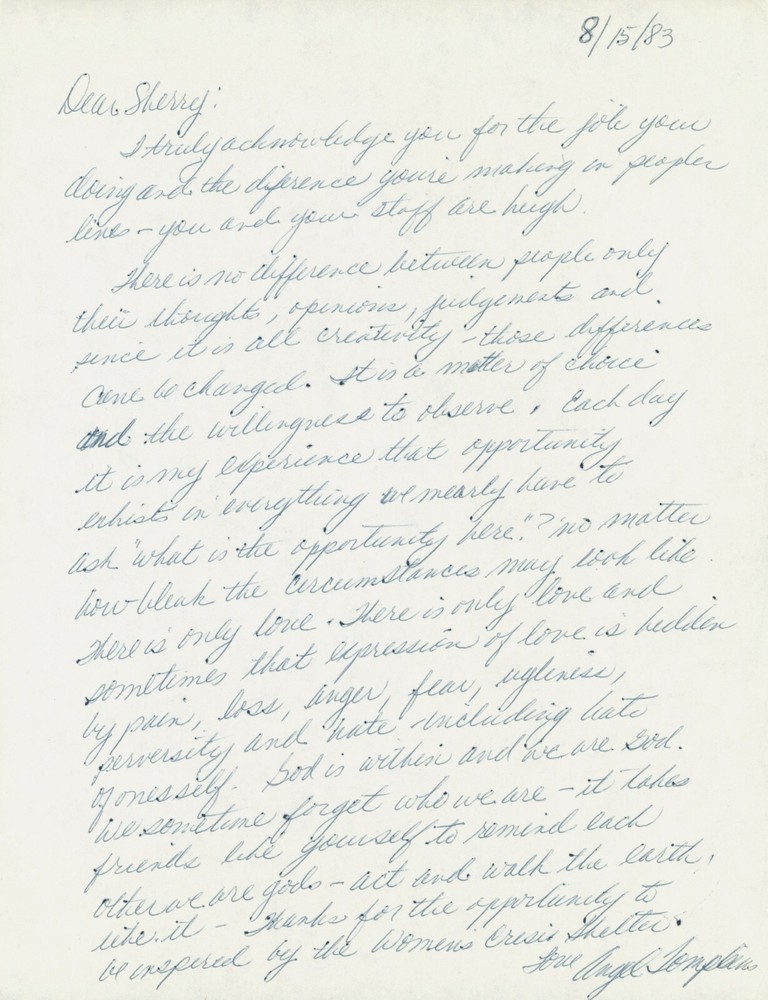 8/15/83
Dear Sherry:
I truly acknowledge you for the job your
doing and the diference you're making in peoples
lives – you and your staff are heigh.
There is no difference between people only
their thoughts, opinions, judgements and
since it is all creativity – those differences
cane be changed. It is a matter of choice
and the willingness to observe. Each day
it is my experience that opportunity
exhists in everything we mearly have to
ask "what is the opportunity here"? no matter
how bleak the circumstances may look like.
There is only love. There is only love and
sometimes that expression of love is hidden
by pain, loss, anger, fear, ugliness,
perversity and hate – including hate
of onesself. God is within and we are God.
We sometime forget who we are – it takes
friends like yourself to remind each
other we are gods – act and walk the earth
like it – Thanks for the opportunity to
be inspired by the Womens Crisis Shelter.
Love Angel Tompkins